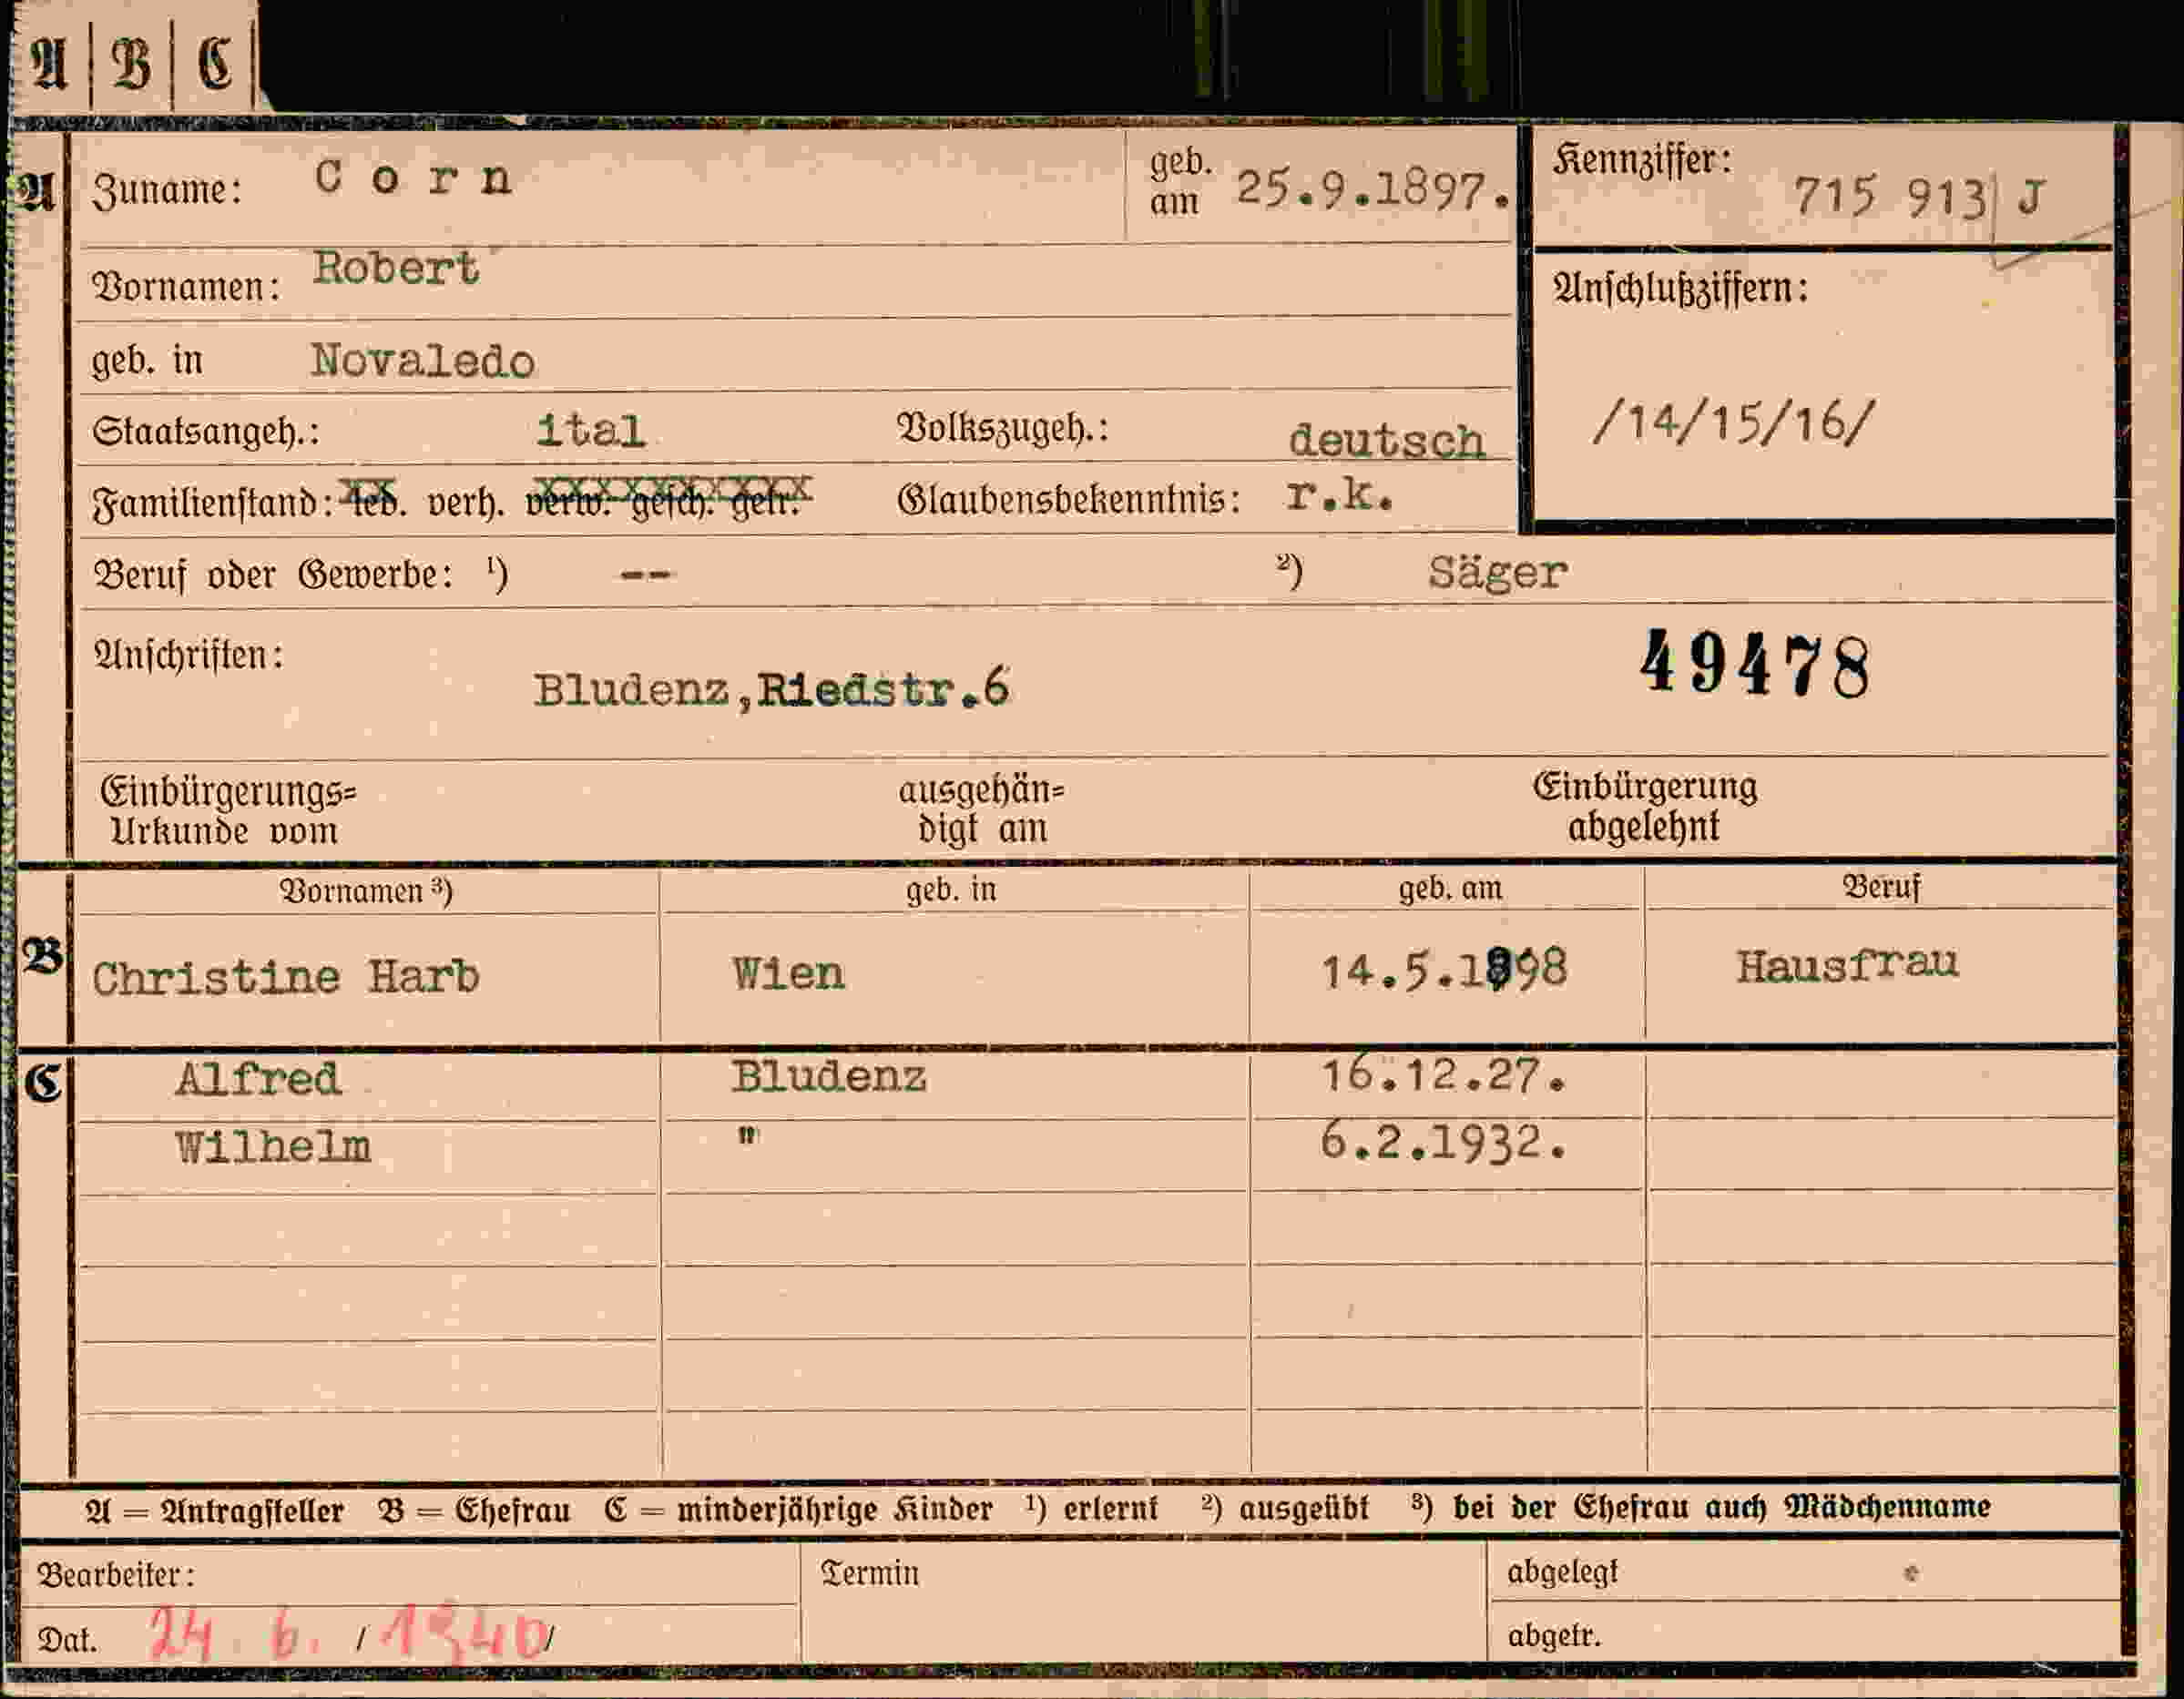 A | B | C
A Zuname: Corn geb. am 25.9.1897. Kennziffer: 715 913 J
Vornamen: Robert
Anschlußziffern:
geb. in Novaledo
/14/15/16/
Staatsangeh.: ital Volkszugeh.: deutsch
Familienstand: led. verh. verw. gesch. getr. Glaubensbekenntnis: r.k.
Beruf oder Gewerbe: ¹) -- ²) Säger
Anschriften: 49478
Bludenz,Riedstr.6
Einbürgerungs= ausgehän= Einbürgerung
Urkunde vom digt am abgelehnt
Vornamen ³) geb. in geb. am Beruf
B Christine Harb Wien 14.5.1898 Hausfrau
C Alfred Bludenz 16.12.27.
Wilhelm " 6.2.1932.
A = Antragsteller B = Ehefrau C = minderjährige Kinder ¹) erlernt ²) ausgeübt ³) bei der Ehefrau auch Mädchenname
Bearbeiter: Termin abgelegt
Dat. 24. 6. / 1940/ abgetr.